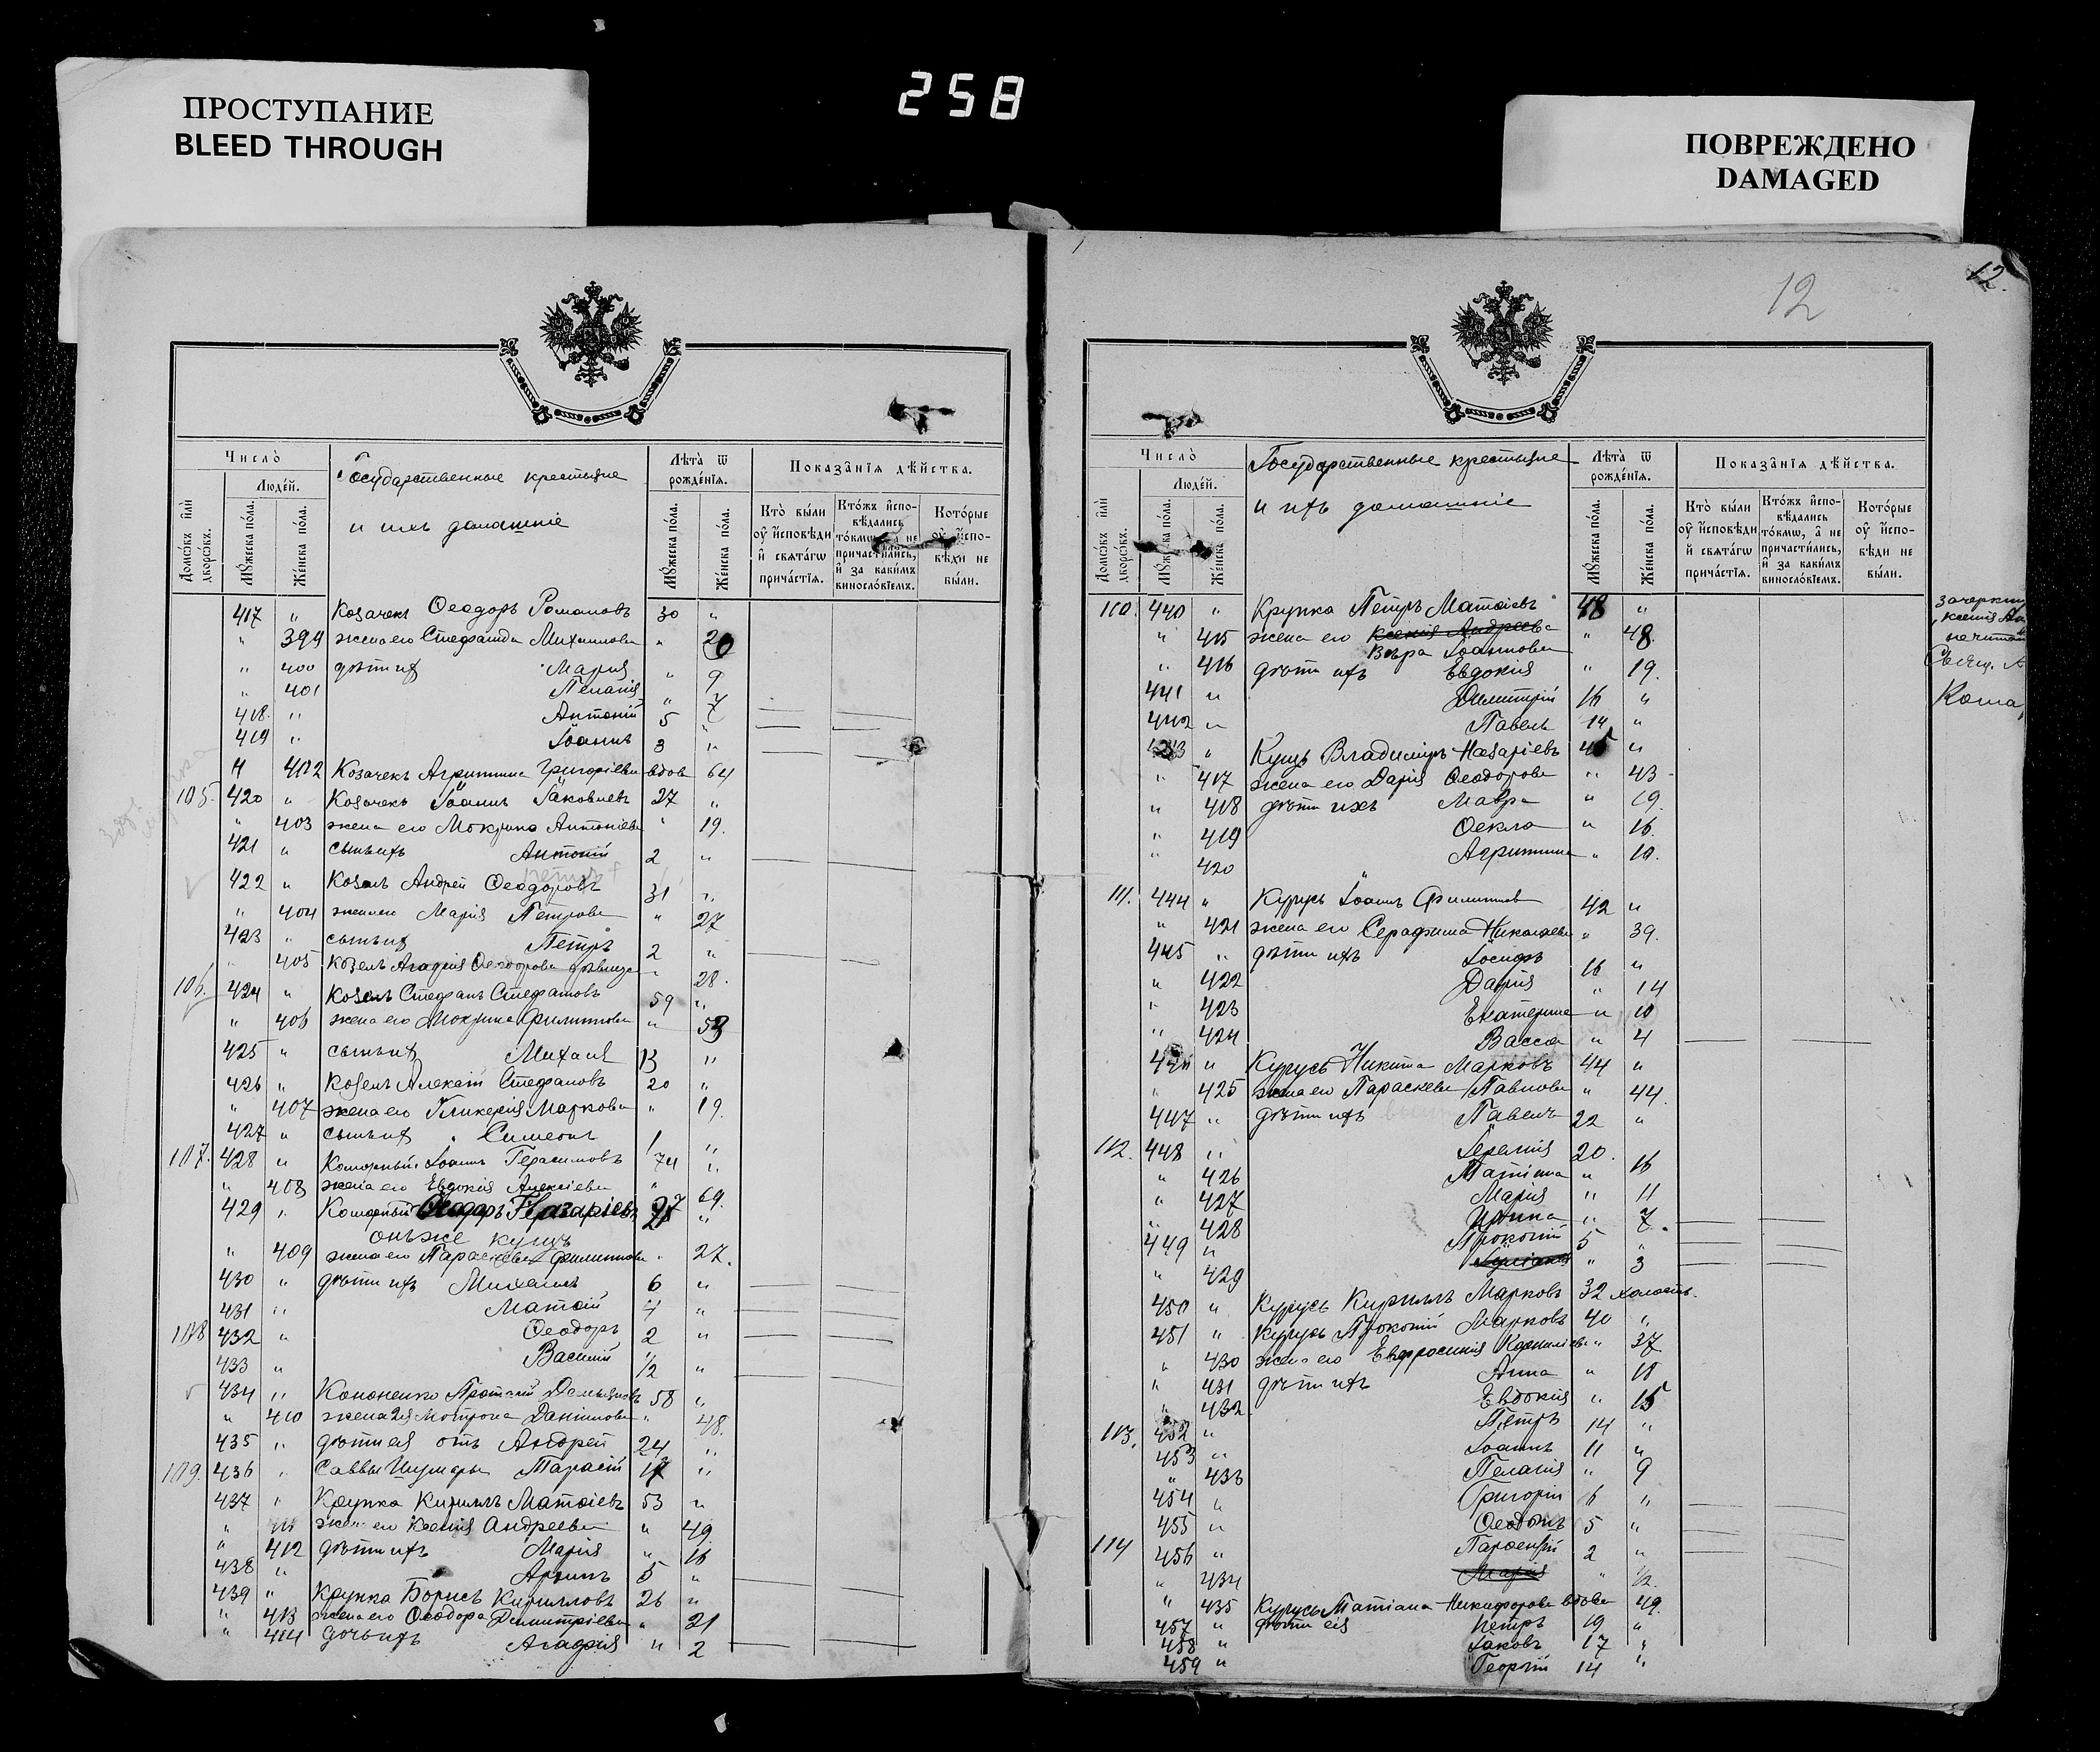 ПРОСТУПАНИЕ
BLEED THROUGH
258
ПОВРЕЖДЕНО
DAMAGED
Число̀
Людéй.
Домѡ́въ и҆лѝ дворѡ́въ.
Мꙋ́жеска по́ла.
Же́нска по́ла.
Государственные крестьяне
и ихъ домашніе
Лѣ́та ѿ рожде́нїѧ.
Мꙋ́жеска по́ла.
Же́нска по́ла.
Показа̑нїѧ дѣ́йства.
Кто̀ бы́ли оу҆ и҆сповѣди и҆ свѧта́гѡ прича́стїѧ.
Кто́жъ и҆спо-вѣ́дались то́кмѡ, а҆ не причасти́лись, и҆ за каки́мъ винослѡ́вїемъ.
Кото́рые оу҆ и҆спо-вѣди не бы́ли.
417 " Козачекъ Ѳеодоръ Романовъ 30 "
" 399 жена его Стефанида Михаилова " 20
" 400 дѣти ихъ Марія " 9
" 401 Пелагія " 7
418 " Антоній 5 "
419 " Іоаннъ 3 "
402 Козачекъ Агрипина Григоріева вдова 64
105. 420 " Козачекъ Іоаннъ Іаковлевъ 27 "
" 403 жена его Мокрина Антоніева " 19.
421 " сынъ ихъ Антоній 2 "
422 " Козелъ Андрей Ѳеодоровъ 31 "
" 404 жена его Марія Петрова " 27
423 " сынъ ихъ Петръ 2 "
" 405 Козелъ Агафія Ѳеодорова дѣвица " 28.
106. 424 " Козелъ Стефанъ Стефановъ 59 "
" 406 жена его Мокрина Филиппова "
425 " сынъ ихъ Михаилъ 13 "
426 " Козелъ Алексій Стефановъ 20 "
" 407 жена его Гликерія Маркова " 19.
427 " сынъ ихъ Симеонъ 1 "
107. 428 " Іоаннъ Герасимовъ 74 "
" 408 жена его Евдокія Алексіева " 69.
429 " Ѳеодоръ Назаріевъ 27 "
онъ же кущъ
" 409 жена его Параскева Филиппова " 27.
430 " дѣти ихъ Михаилъ 6 "
431 " Матѳій 4 "
108 432 " Ѳеодоръ 2 "
433 " Василій 1/2 "
434 " Кононенко Демьяновъ 58 "
" 410 жена 2я Мотрона Даніилова " 48.
435 " дѣти ея отъ Андрей 24 "
109. 436 " Саввы Тарасій 17 "
437 " Крупка Кириллъ Матѳіевъ 53 "
" жена его Ксенія Андреева " 49.
" 412 дѣти ихъ Марія " 16
438 " 5 "
439 " Крупка Борисъ Кирилловъ 26 "
" 413 жена его Ѳеодора Димитріева " 21
" 414 дочь ихъ Агафія " 2
12.
12
Число̀
Людéй.
Домѡ́въ и҆лѝ дворѡ́въ.
Мꙋ́жеска по́ла.
Же́нска по́ла.
Государственные крестьяне
и ихъ домашніе
Лѣ́та ѿ рожде́нїѧ.
Мꙋ́жеска по́ла.
Же́нска по́ла.
Показа̑нїѧ дѣ́йства.
Кто̀ бы́ли оу҆ и҆сповѣди и҆ свѧта́гѡ прича́стїѧ.
Кто́жъ и҆спо-вѣ́дались то́кмѡ, а҆ не причасти́лись, и҆ за каки́мъ винослѡ́вїемъ.
Кото́рые оу҆ и҆спо-вѣди не бы́ли.
110. 440 " Крупка Петръ Матѳіевъ 48 "
" 415 жена его Ксенія Андреева " 48.
Вѣра Іоаннова
" 416 дѣти ихъ Евдокія " 19.
441 " Димитрій 16 "
442 " Павелъ 14 "
443 " Кущъ Владиміръ Назаріевъ 45 "
" 417 жена его Дарія Ѳеодорова " 43
" 418 дѣти ихъ Мавра " 19.
" 419 Ѳекла " 16.
" 420 Агрипина " 10.
111. 444 " Курусь Іоаннъ Филипповъ 42 "
" 421 жена его Серафима Николаева " 39.
445 " дѣти ихъ Іосифъ 16 "
" 422 Дарія " 14
" 423 Екатерина " 10
" 424 Васса " 4
446 " Курусь Никита Марковъ 44 "
" 425 жена его Параскева Павлова " 44.
447 " дѣти ихъ Павелъ 22 "
112. 448 " Іеремія 20. "
" 426 Татіана " 16
" 427 Марія " 11
" 428 " 7.
449 " Прокопій 5 "
" 429 " 3
450 " Курусь Кириллъ Марковъ 32 холостъ.
451 " Курусь Прокопій Марковъ 40 "
" 430 жена его Евфросинія " 37.
" 431 дѣти ихъ Анна " 18
" 432 Евдокія " 15
113. 452 " Петръ 14 "
453 " Іоаннъ 11 "
" 433 Пелагія " 9
454 " Григорій 6 "
455 " 5 "
114 456 " Парѳеній 2 "
" 434 Марія " 1/2.
" 435 Курусь Татіана Никифорова вдова 49.
457 " дѣти ея Петръ 19 "
458 " Іаковъ 17 "
459 " Георгій 14 "